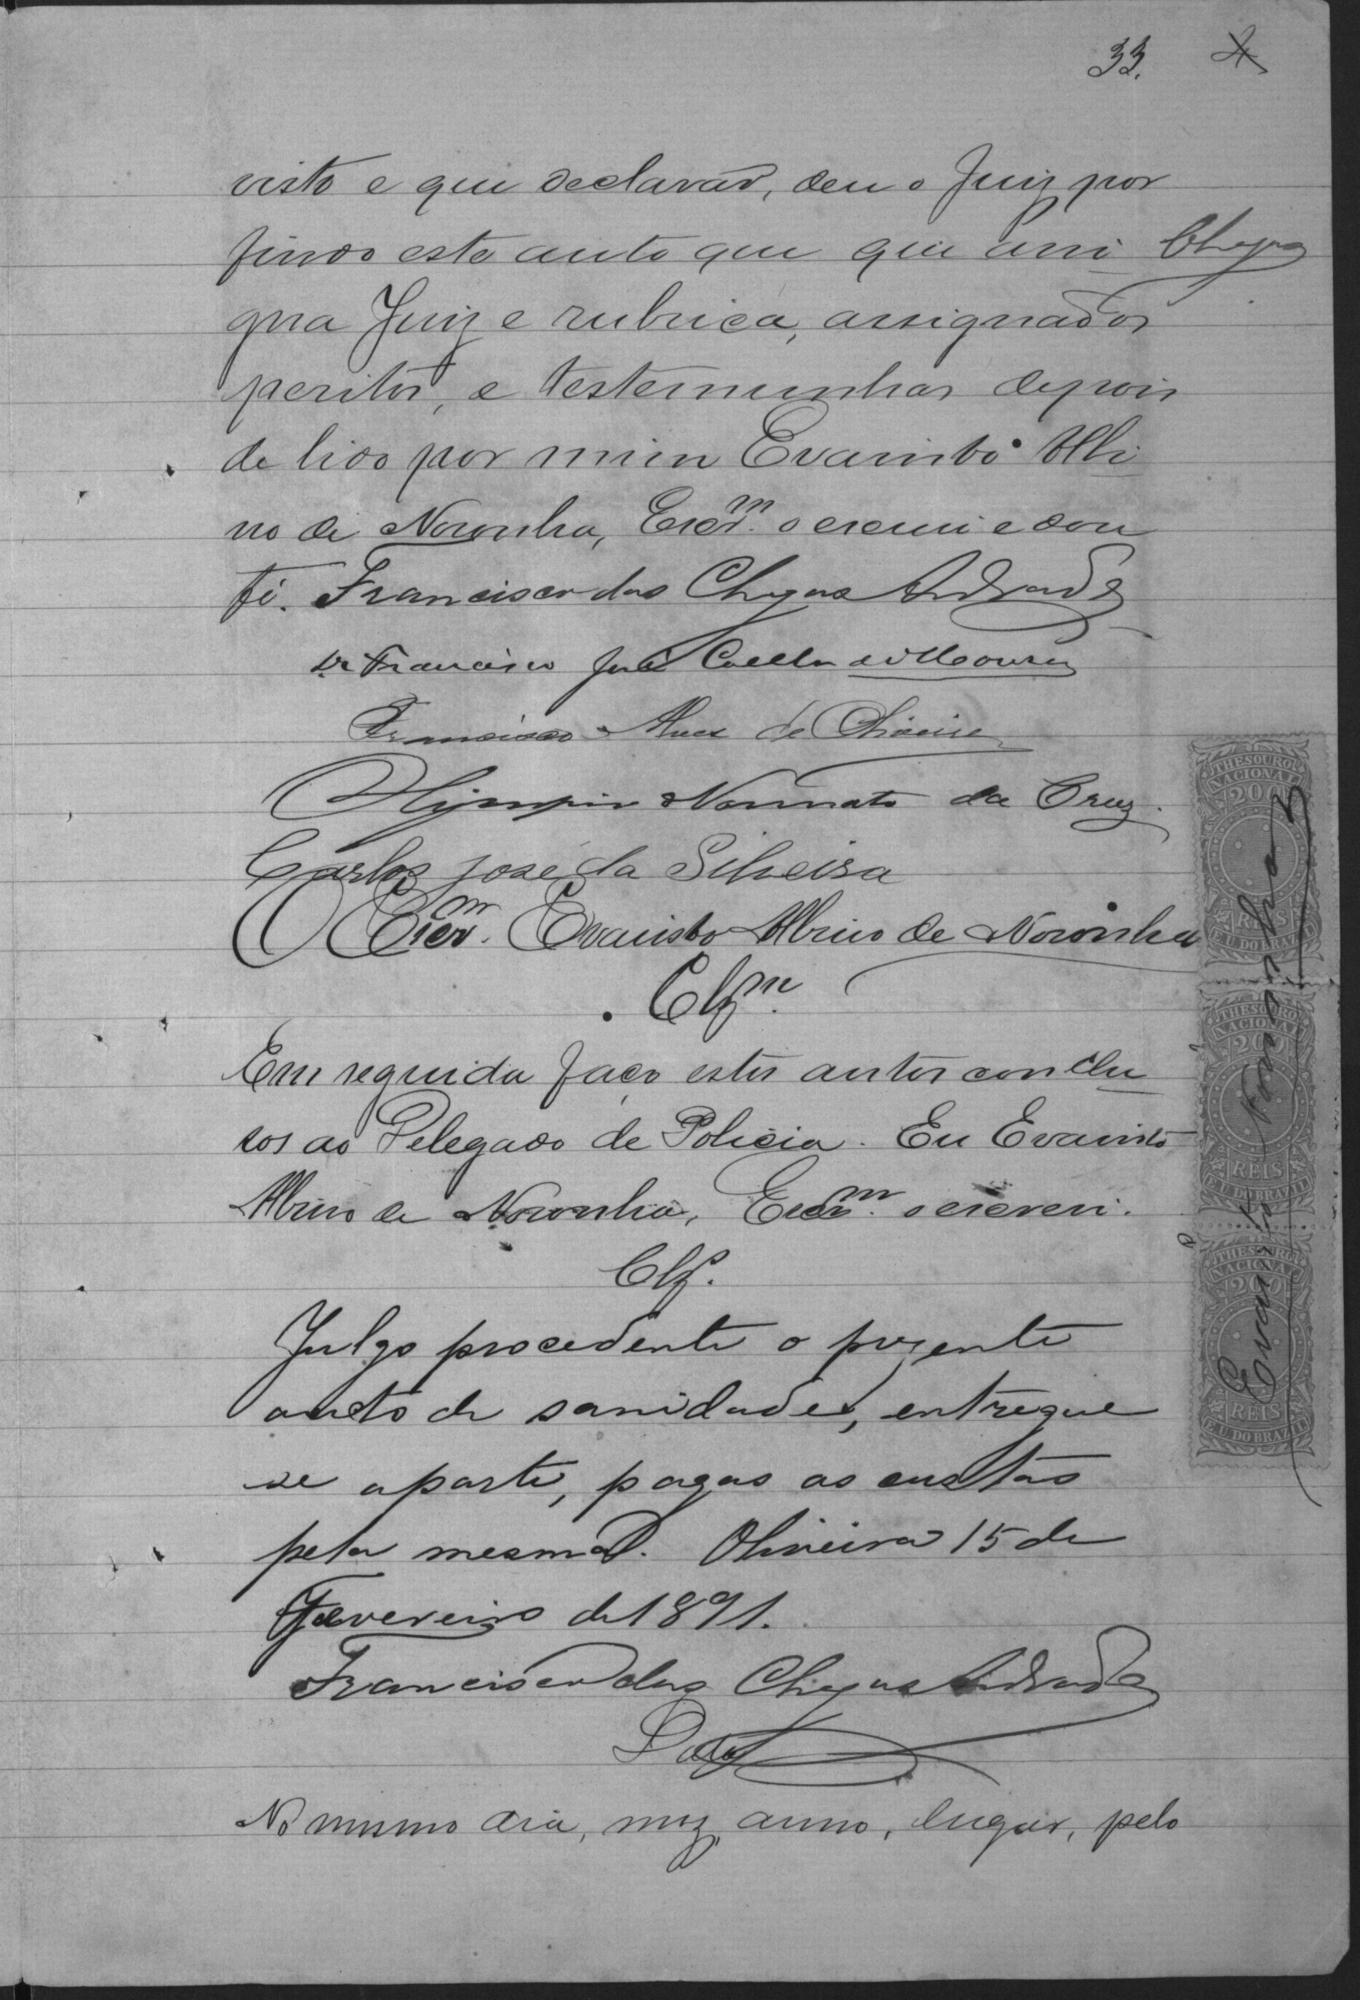 33. 4
visto e que declarão, deu o Juiz por
findo este auto que que assi Chagas
gna Juiz e rubrica, assignados
peritos, e testemunhas depois
de lido por mim Evaristo Albi
no de Noronha, Escrm. o escrevi e dou
fé. Francisco das Chagas Andrade
Dr Francisco José Coelho de Moura
Francisco Alves de Oliveira
Olympio Nonnato da Cruz.
Carlos José da Silveira
O Escrm. Evaristo Albino de Noronha
Clsm.
Em seguida faço estes autos conclu
sos ao Delegado de Policia. Eu Evaristo
Albino de Noronha, Escrm. o escrevi.
Cls.
Julgo procedente o prezente
aucto de sanidade, entregue
se aparte, pagas as custas
pela mesma. Oliveira 15 de
Fevereiro de 1891.
Francisco das Chagas Andrade
Data
No mesmo dia, mez, anno, lugar, pelo
THESOURO
NACIONAL
200
REIS
E.U. DO BRAZIL
THESOURO
NACIONAL
200
REIS
E.U. DO BRAZIL
THESOURO
NACIONAL
200
REIS
E.U. DO BRAZIL
Evaristo Noronha